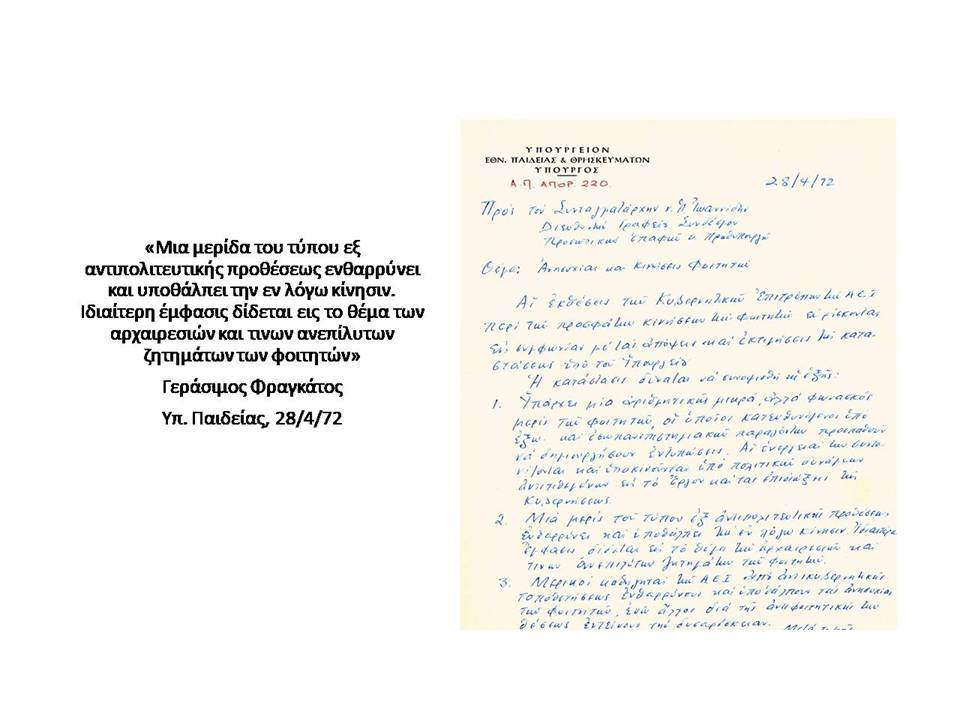 «Μια μερίδα του τύπου εξ
αντιπολιτευτικής προθέσεως ενθαρρύνει
και υποθάλπει την εν λόγω κίνησιν.
Ιδιαίτερη έμφασις δίδεται εις το θέμα των
αρχαιρεσιών και τινων ανεπίλυτων
ζητημάτων των φοιτητών»
Γεράσιμος Φραγκάτος
Υπ. Παιδείας, 28/4/72
ΥΠΟΥΡΓΕΙΟΝ
ΕΘΝ. ΠΑΙΔΕΙΑΣ & ΘΡΗΣΚΕΥΜΑΤΩΝ
ΥΠΟΥΡΓΟΣ
Α.Π. ΑΠΟΡ. 220.
28/4/72
Πρός τόν Συνταγματάρχην κ. Ἰωαννίδην
Διευθυντήν Γραφείου Συνδέσμου
Προσωπικῶν Ἐπαφῶν κ. Πρωθυπουργοῦ
Θέμα: Ἀνησυχίαι καί Κινήσεις Φοιτητῶν
Αἱ ἐκθέσεις τῶν Κυβερνητικῶν Ἐπιτρόπων τῶν Α.Ε.Ι
περί τῶν προσφάτων κινήσεων τῶν φοιτητῶν εὑρίσκονται
εἰς συμφωνίαν μέ τάς ἀπόψεις καί ἐκτιμήσεις τῆς κατα-
στάσεως ὑπό τοῦ Ὑπουργείου
Ἡ κατάστασις δύναται νά συνοψισθῇ ὡς ἑξῆς:
1. Ὑπάρχει μία ἀριθμητικῶς μικρά, ἀλλά φωνασκός
μερίς τῶν φοιτητῶν, οἱ ὁποῖοι κατευθυνόμενοι ὑπό
ἔξω καί ἐσωπανεπιστημιακῶν παραγόντων προσπαθοῦν
νά δημιουργήσουν ἐντυπώσεις. Αἱ ἐνέργειαί των συντο-
νίζονται καί ὑποκινοῦνται ὑπό πολιτικῶν δυνάμεων
ἀντιτιθεμένων εἰς τό ἔργον καί τάς ἐπιδιώξεις τῆς
Κυβερνήσεως.
2. Μιά μερίς τοῦ τύπου ἐξ ἀντιπολιτευτικῆς προθέσεως
ἐνθαρρύνει καί ὑποθάλπει τήν ἐν λόγω κίνησιν. Ἰδιαιτέρα
ἔμφασις δίδεται εἰς τό θέμα τῶν ἀρχαιρεσιῶν καί
τινων ἀνεπιλύτων ζητημάτων τῶν φοιτητῶν.
3. Μερικοί καθηγηταί τῶν Α.Ε.Ι ἀπό ἀντικυβερνητικῆς
τοποθετήσεως ἐνθαρρύνουν καί ὑποθάλπουν τάς ἀνησυχίας
τῶν φοιτητῶν, ἐνῶ ἄλλοι διά τῆς ἀντιφοιτητικῆς των
θέσεως ἐντείνουν τήν δυσαρέσκειαν.